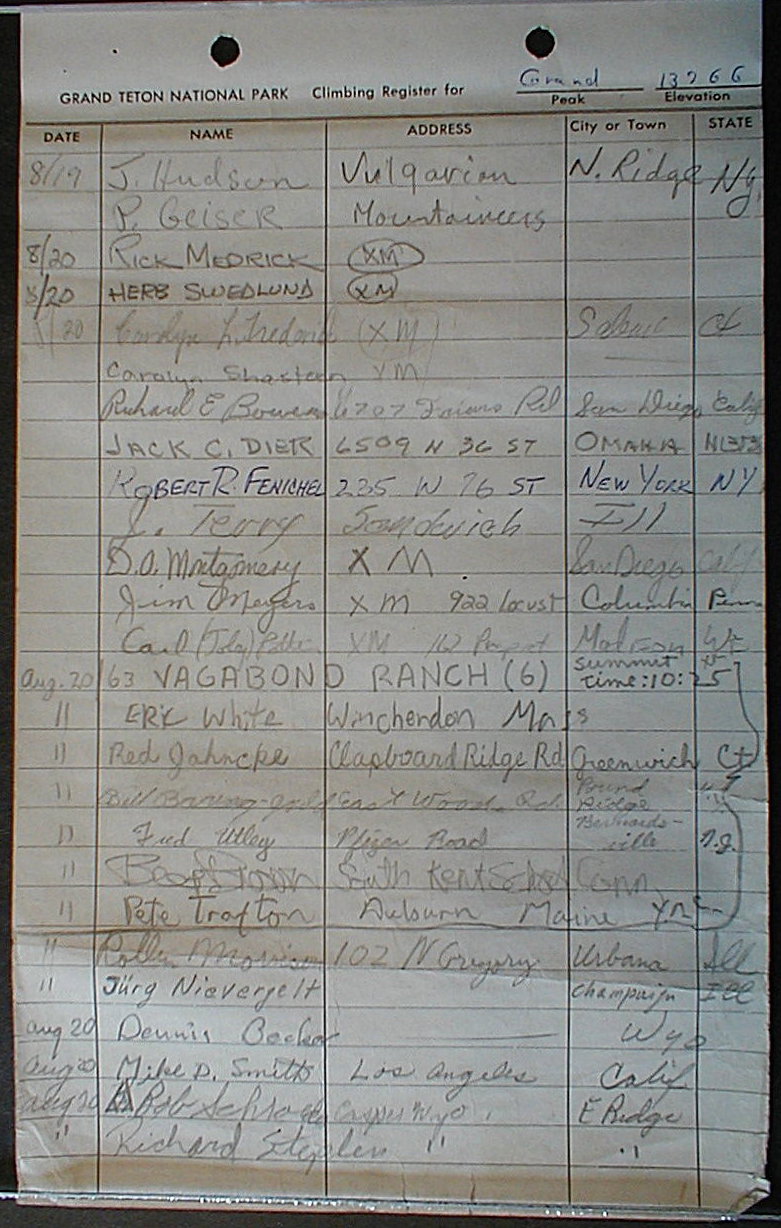 Grand 13766
GRAND TETON NATIONAL PARK Climbing Register for Peak Elevation
DATE NAME ADDRESS City or Town STATE
8/19 J. Hudson Vulgarian N. Ridge Ny.
P. GEISER Mountaineers
8/20 RICK MEDRICK XM
8/20 HERB SWEDLUND XM
8/20 Carolyn L. (XM) Ct
Carolyn XM
Richard E Bowen 6707 Rd San Diego Calif
JACK C. DIER 6509 N 36 ST OMAHA
ROBERT R. FENICHEL 235 W 76 ST NEW YORK NY
J. Terry Sandwich Ill
D.O. Montgomery XM San Diego Calif
Jim Meyers XM 922 Locust Columbia Penn
Carl XM
Aug. 20 63 VAGABOND RANCH (6) summit time: 10:25
" ERIC White Winchendon Mass
" Red Jahncke Clapboard Ridge Rd Greenwich Ct
" Bill East Woods Rd. Pound Ridge
" Fred Utley Road Bernardsville N.J.
" South Kent School Conn
" Pete Trafton Auburn Maine
" 102 N Gregory Urbana Ill
" Jürg Nievergelt Champaign Ill
Aug 20 Dennis Becker Wyo
Aug 20 Mike D. Smith Los Angeles Calif
Aug 20 Bob Casper Wyo. E Ridge
" Richard " "